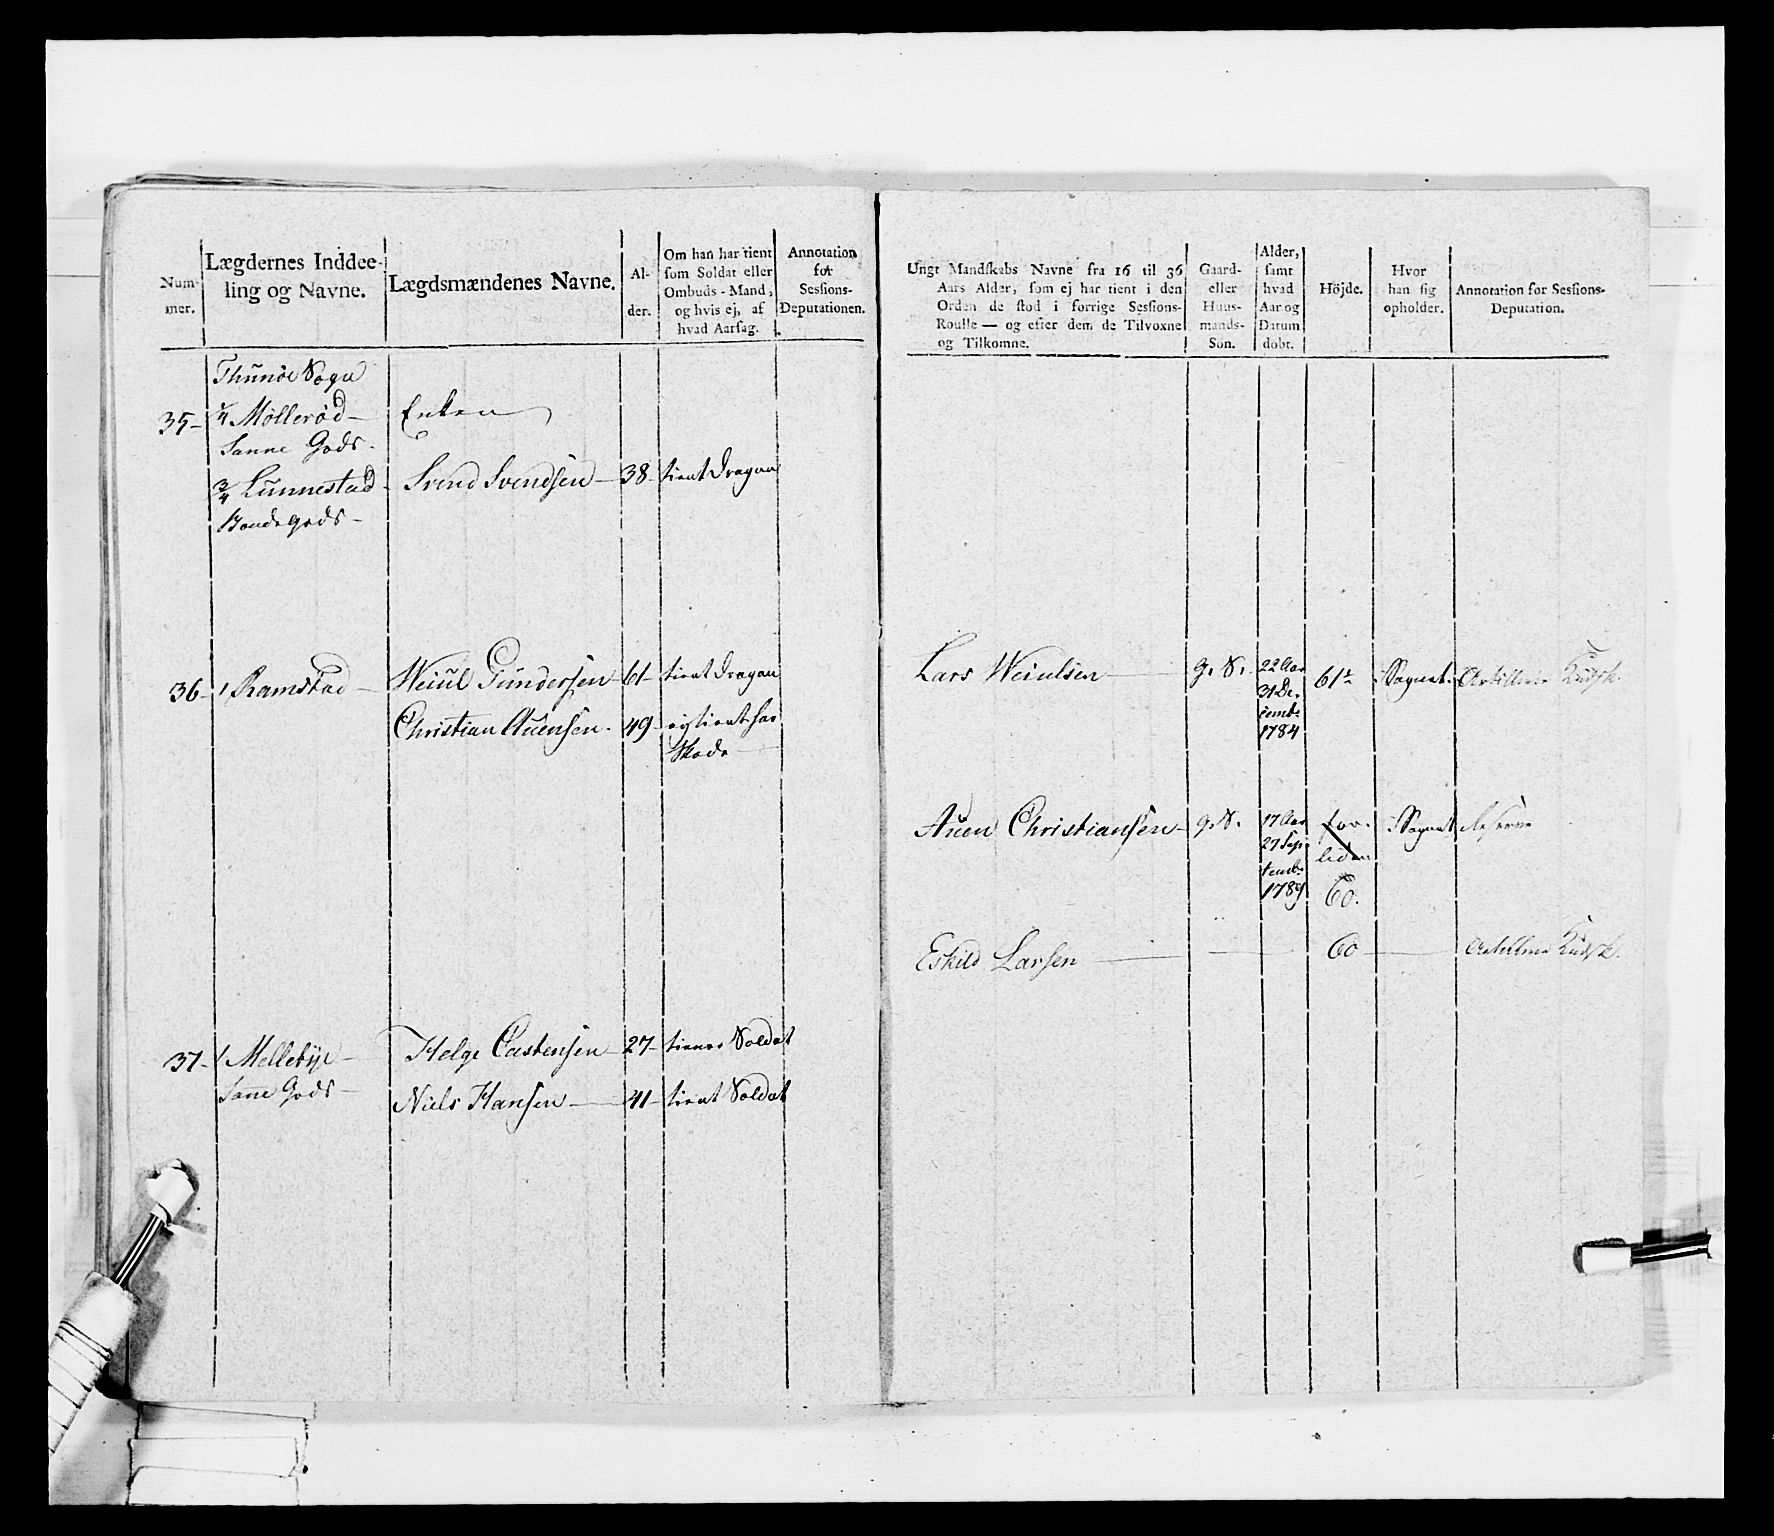 Num-
mer.
Lægdernes Inddee-
ling og Navne.
Lægdsmændenes Navne.
Al-
der.
Om han har tient
som Soldat eller
Ombuds-Mand,
og hvis ej, af
hvad Aarsag.
Annotation
for
Sessions-
Deputationen.
Thunøe Sogn
35- 1/4 Møllerød- Enken
Sanne Gods-
3/4 Lunnestad- Svend Svendsen- 38- tient Dragon
Bondegods-
36- 1 Ramstad- Weiül Gundersen 61- tient Dragon
Christian Auensen- 49- ej tient har
Skade
37- 1 Mellebye- Helge Castensen- 27- tiener Soldat
Sane Gods- Niels Hansen- 41- tient Soldat
Ungt Mandskabs Navne fra 16 til 36
Aars Alder, som ej har tient i den
Orden de stod i forrige Sessions-
Roulle — og efter dem de Tilvoxne
og Tilkomne.
Gaard-
eller
Huus-
mands-
Søn.
Alder,
samt
hvad
Aar og
Datum
døbt.
Höjde.
Hvor
han sig
opholder.
Annotation for Sessions-
Deputation.
Lars Weiulsen g. S. 22 Aar 61½ i Sognet. Artillerie Kudsk.
31 De-
cembr
1784
Auen Christiansen- g. S. 17 Aar for- i Sognet Reserve
27 Sep- liden
tembr
1789 60.
Eskild Larsen 60 Artillerie Kudsk.